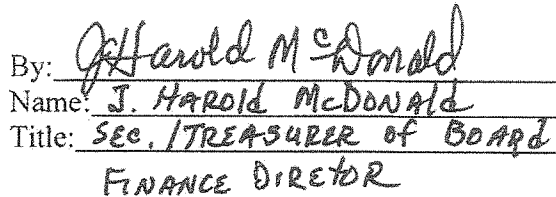 By: J Harold McDonald
Name: J. HAROLD McDONALD
Title: SEC. / TREASURER of BOARD
FINANCE DIRETOR